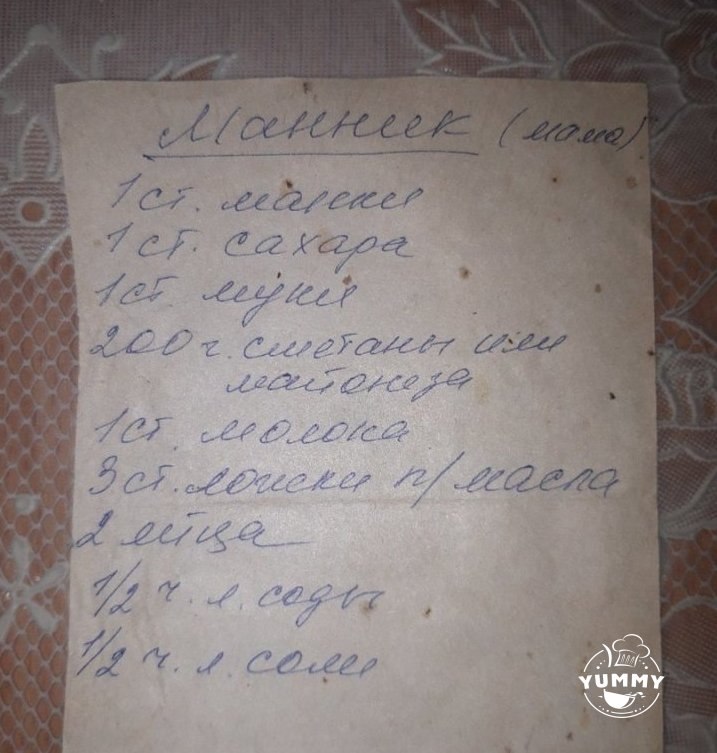 Манник (мама)
1 ст. манки
1 ст. сахара
1 ст. муки
200 г. сметаны или
майонеза
1 ст. молока
3 ст. ложки п/масла
2 яйца
1/2 ч. л. соды
1/2 ч. л. соли
YUMMY